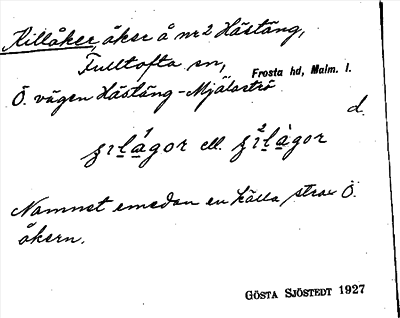 Killåker, åker å nr 2 Hästäng,
Fulltofta sn, Frosta hd, Malm. l.
Ö. vägen Hästäng-Mjälaströ
d.
ell.
Namnet emedan en källa strax Ö.
åkern.
GÖSTA SJÖSTEDT 1927